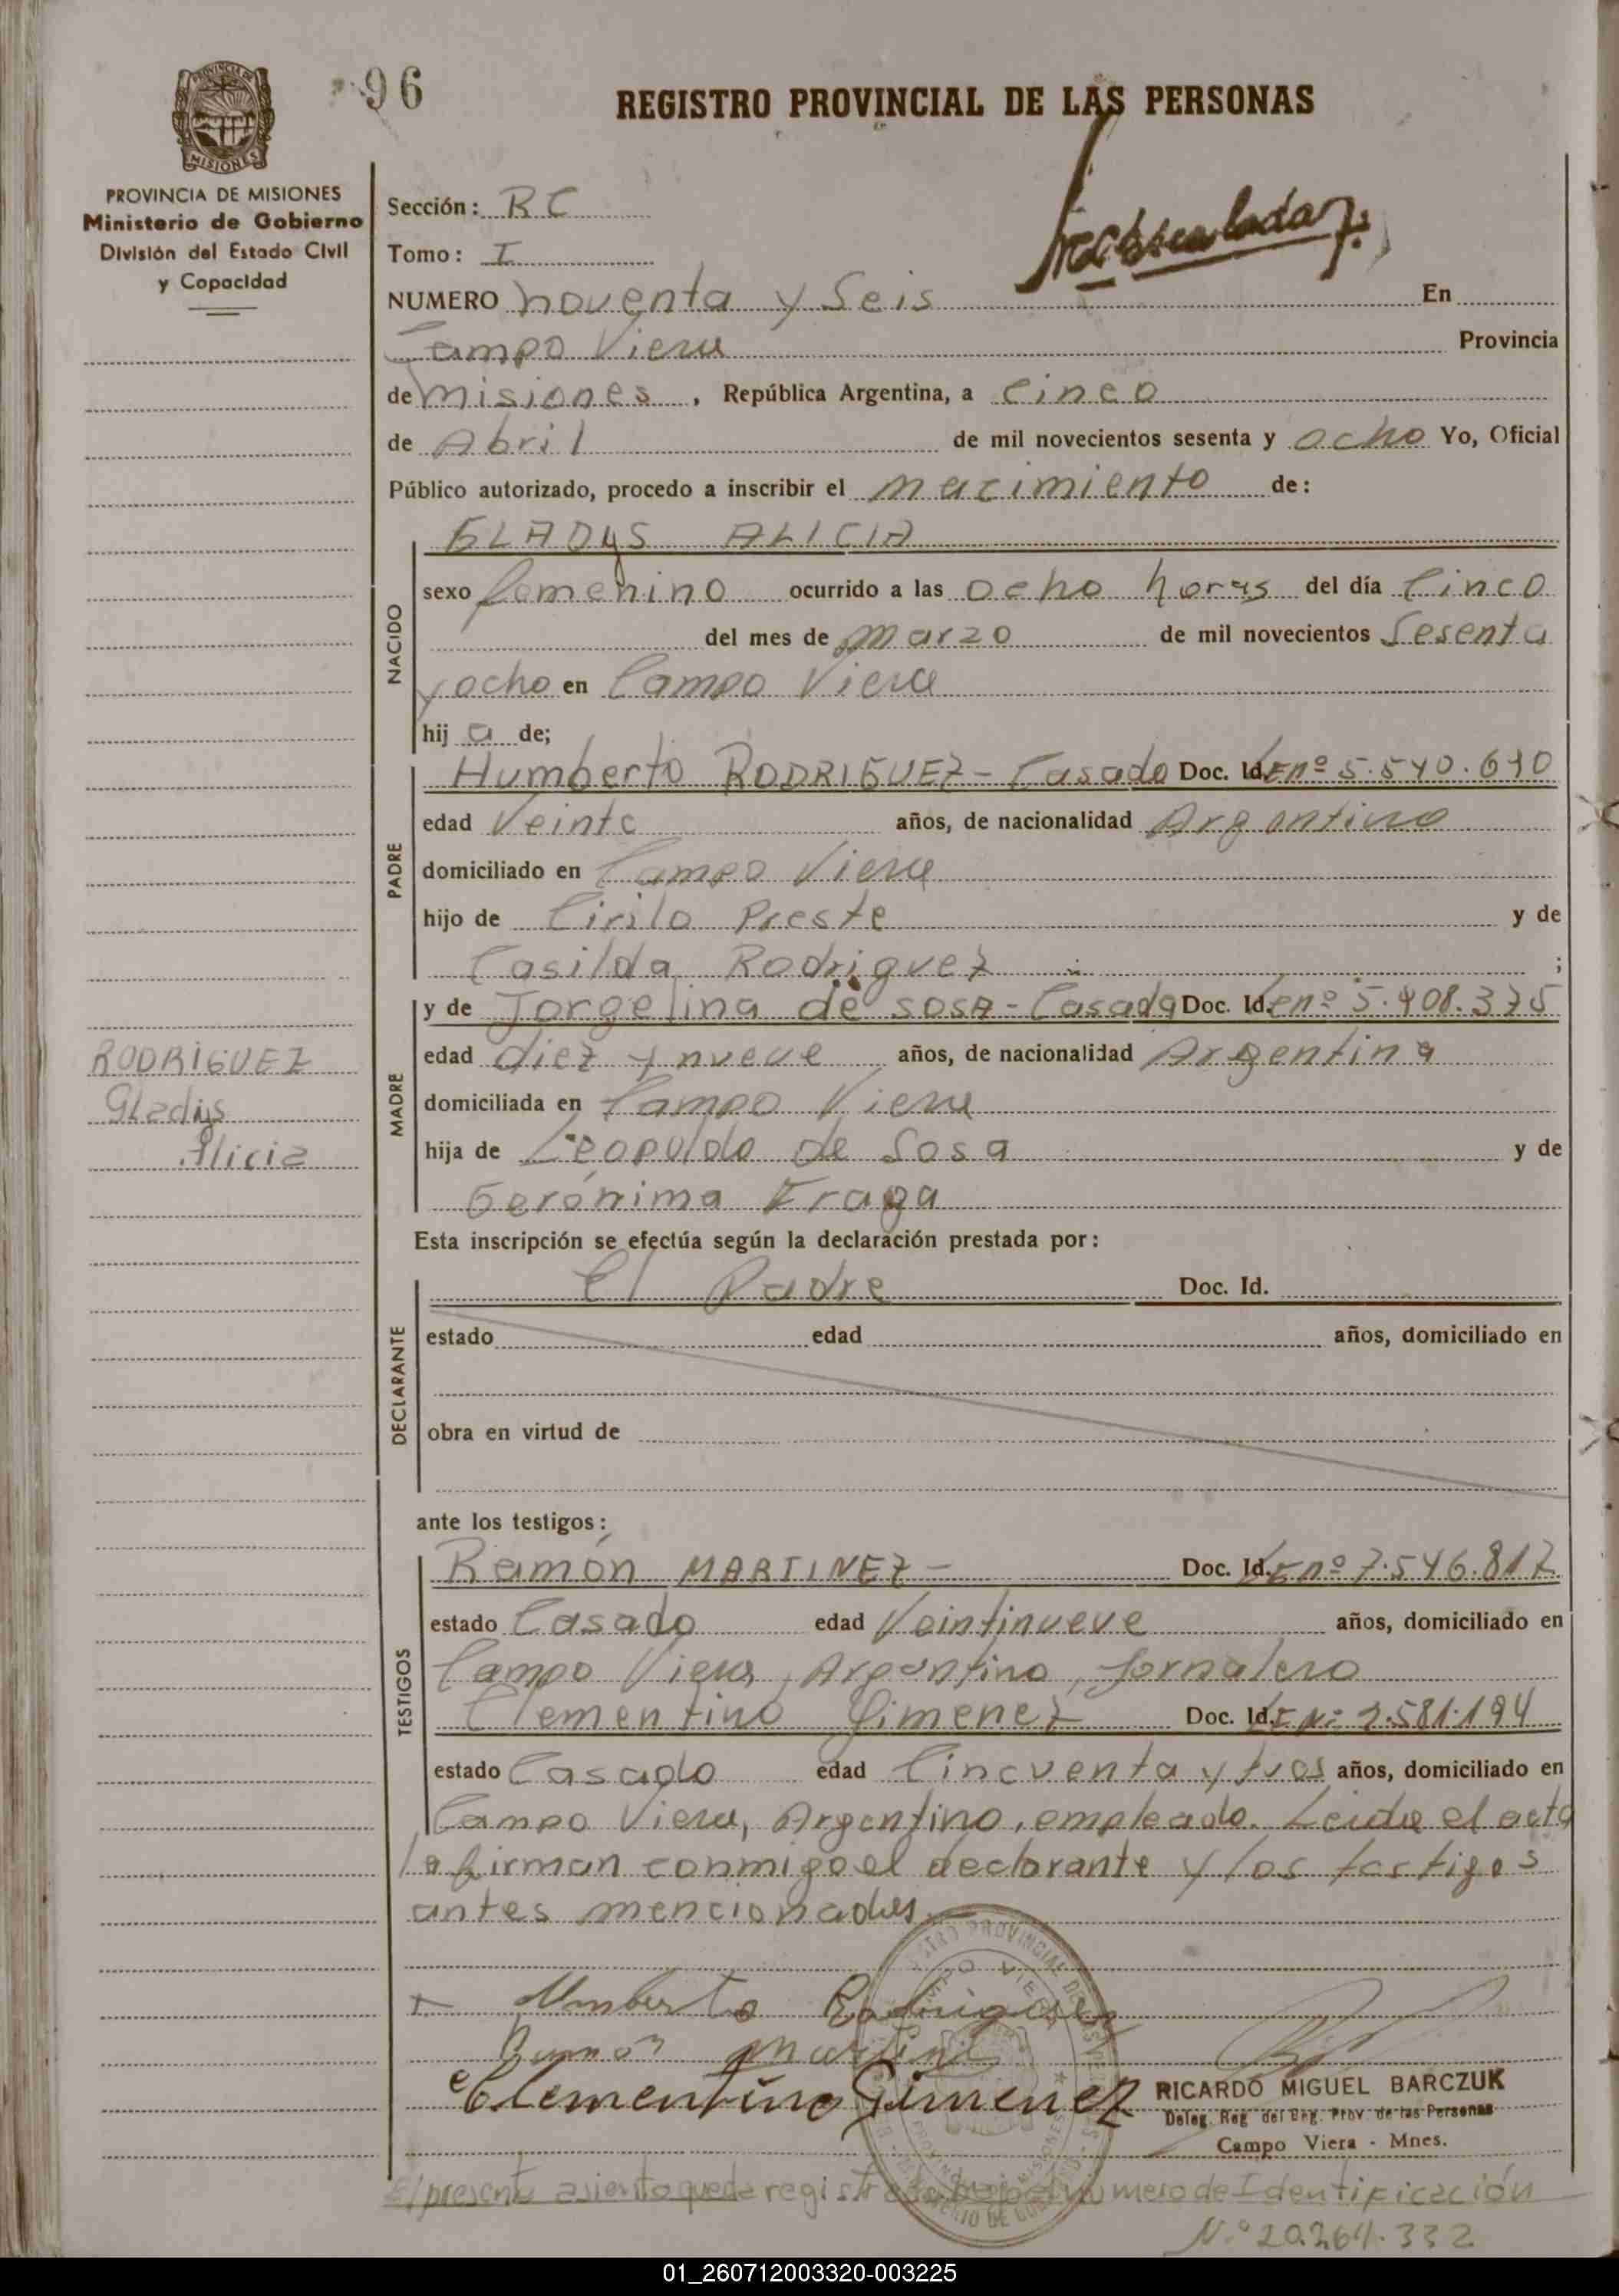 96
REGISTRO PROVINCIAL DE LAS PERSONAS
PROVINCIA DE MISIONES
Ministerio de Gobierno
División del Estado Civil
y Capacidad
Sección: RC
Tomo: I
NUMERO noventa y Seis En
Campo Viera Provincia
de misiones, República Argentina, a cinco
de Abril de mil novecientos sesenta y ocho Yo, Oficial
Público autorizado, procedo a inscribir el nacimiento de:
NACIDO
GLADYS ALICIA
sexo femenino ocurrido a las ocho horas del día Cinco
del mes de marzo de mil novecientos Sesenta
y ocho en Campo Viera
hij a de;
PADRE
Humberto RODRIGUEZ - Casado Doc. Id. LE nº 5.540.610
edad Veinte años, de nacionalidad Argentino
domiciliado en Campo Viera
hijo de Cirilo Preste y de
Casilda Rodriguez ;
MADRE
y de Jorgelina de SOSA - Casada Doc. Id. LE nº 5.908.375
edad diez y nueve años, de nacionalidad Argentina
domiciliada en Campo Viera
hija de Leopoldo de Sosa y de
Gerónima Fraga
RODRIGUEZ
Gladys
Alicia
Esta inscripción se efectúa según la declaración prestada por:
DECLARANTE
El Padre Doc. Id.
estado edad años, domiciliado en
obra en virtud de
ante los testigos:
TESTIGOS
Ramón MARTINEZ - Doc. Id. LE nº 7.546.817
estado Casado edad Veintinueve años, domiciliado en
Campo Viera, Argentino, Jornalero
Clementino Gimenez Doc. Id. LE Nº 2.581.194
estado Casado edad Cincuenta y años, domiciliado en
Campo Viera, Argentino, empleado. Leida el acta
la firman conmigo el declarante y los testigos
antes mencionados.
Humberto Rodriguez
Ramón Martinez
Clementino Gimenez
RICARDO MIGUEL BARCZUK
Deleg. Reg. del Reg. Prov. de las Personas
Campo Viera - Mnes.
El presente asiento queda registrado bajo el número de Identificación
N.º 20.264.332
01_260712003320-003225